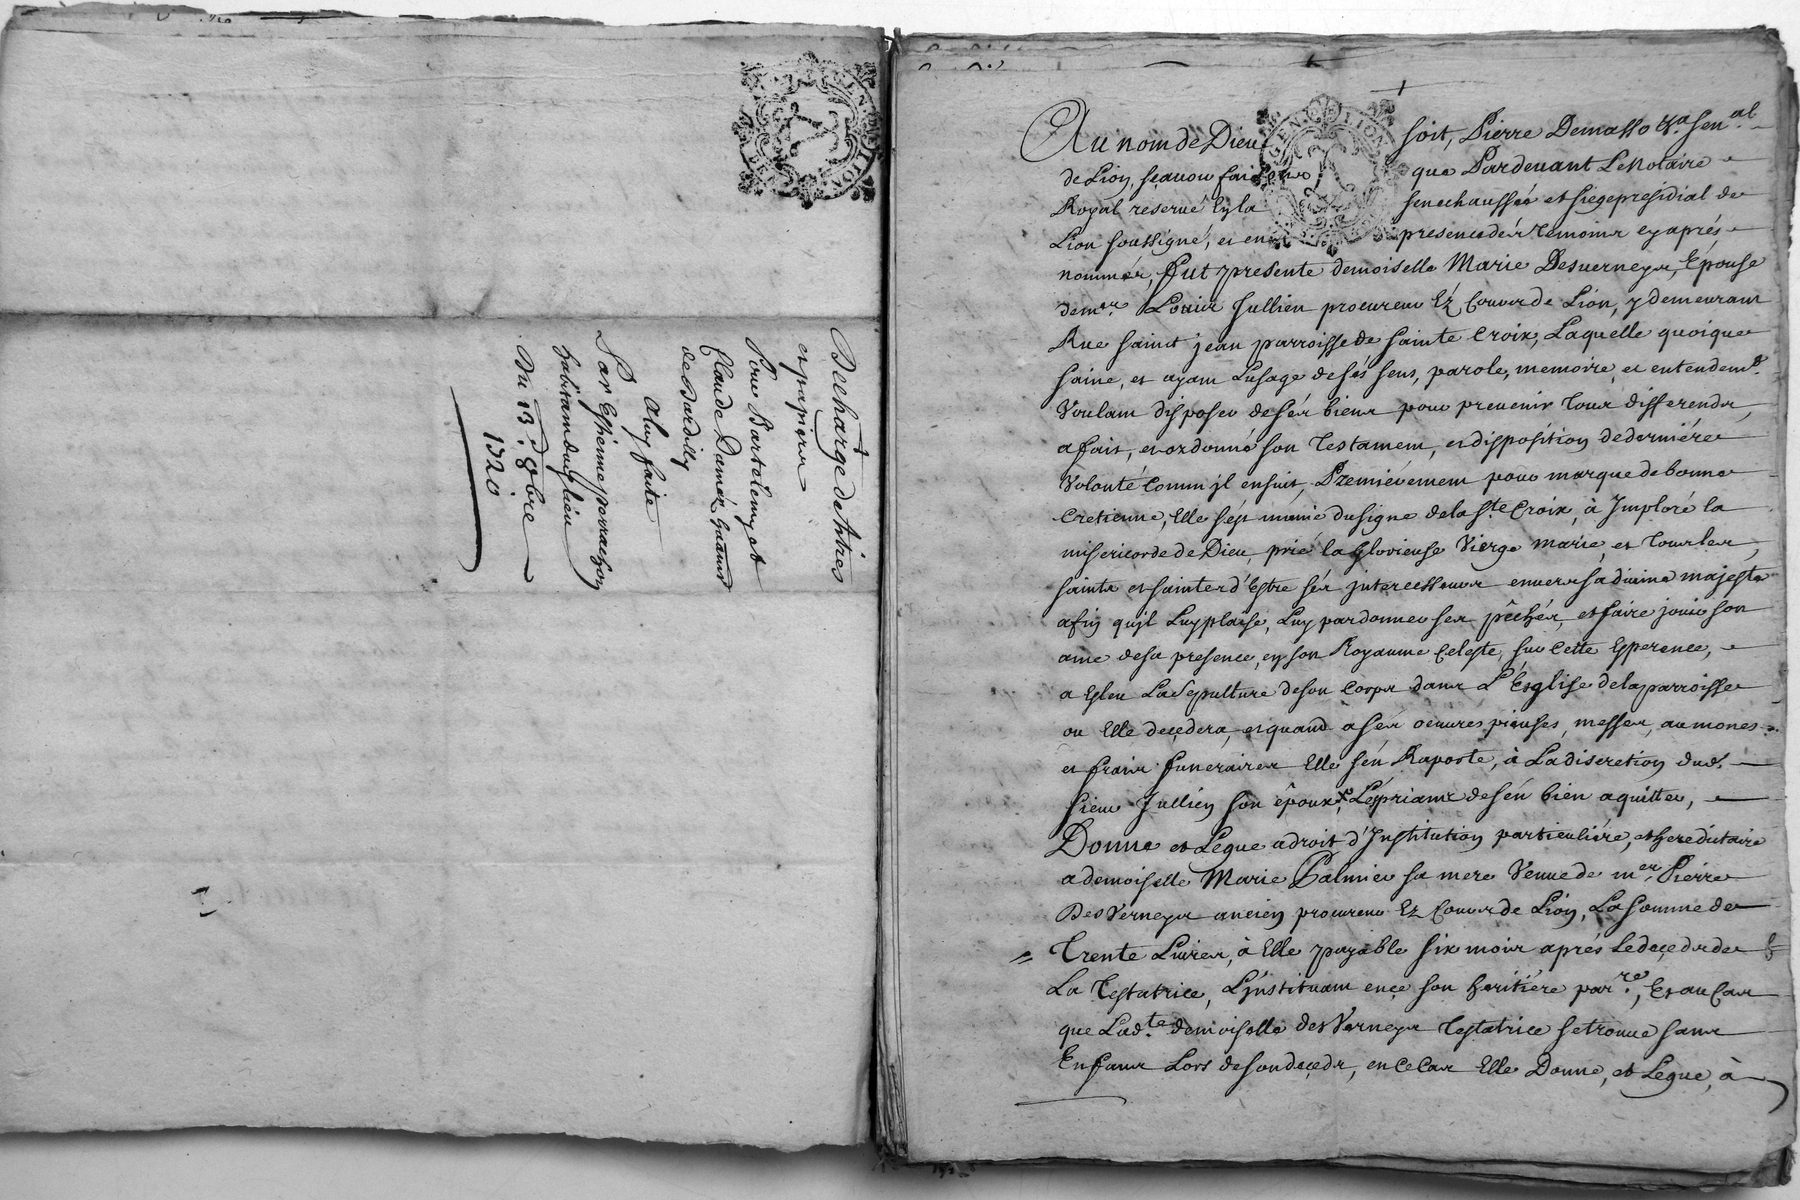 Decharge de titres
et papiers
Pour Bartelemy et
Claude Damés
de Dardilly
a luy faite
Par Estienne perrachon
habitant dud. lieu
Du 13e. 8bre
1720
GEN. DE LION
Au nom de Dieu soit, Pierre Demasso sen.al
de Lion, sçavoir faisons que Pardevant Le Notaire
Royal reservé en la senechaussée et siege presidial de
Lion soussigné, et en presence des temoins cy aprés
nommés, fut presente demoiselle Marie Desverneys, Epouse
de mre. Louis Jullien procureur éz Cours de Lion, y demeurant
Rue saint jean parroisse de sainte Croix, Laquelle quoique
saine, et ayant L'usage de sés sens, parole, memoire, et entendemt.
Voulant disposer de sés biens pour prevenir tous differends,
a fait, et ordonné son testament, et disposition de derniére
Volonté Comm'jl ensuit, Premiérement pour marque de bonne
Cretienne, Elle s'ést munie du signe de la Ste. Croix, à Imploré la
misericorde de Dieu, prié la Glorieuse Vierge Marie, et tous les
saints et saintes d'Estre sés jntercesseurs envers sa divine majesté
afin qu'jl Luy plaise, Luy pardonner ses pêchés, et faire jouir son
ame de sa presence, en son Royaume Celeste, sur Cette Esperance,
a Esleu La Sepulture de son Corps dans L'Ésglise de la parroisse
ou Elle decedera, et quand a sés oeuvres pieuses, messes, aumones
et frais funeraires Elle s'én Raporte, à La discretion dud.
sieur Jullien son êpoux, Le priant de s'én bien aquitter,
Donne et Legue a droit d'Institution particuliére, et hereditaire
a demoiselle Marie Palmier sa mere Veuve de mre. Pierre
DesVerneys ancien procureur Ez Cours de Lion, La somme de
Trente Livres, à Elle payable six mois aprés Le deceds de
La Testatrice, L'jnstituant en ce son heritiére parre., Et au Cas
que Ladte. demoiselle desVerneys Testatrice se trouve sans
Enfans Lors de son deceds, en ce Cas Elle Donne, et Legue, à